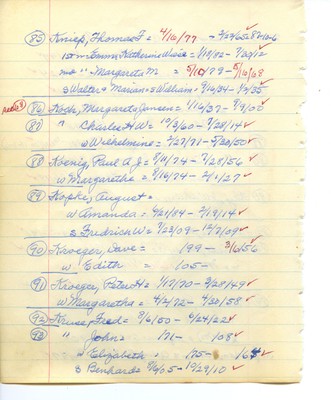 85 Kniep, Thomas F = 4/16/77 -
1st m Emma, Katherine = 1/10/82 - 7/20/12
m " - Margareta M = 5/10/79 - 5/16/68
s Walter + Marian = s William = 9/16/34 - 1/2/35
86 Koch, Margareta Jensen = 1/16/37 - 7/9/02
87 " Charles H W = 10/3/60 - 2/28/14
w Wilhelmine = 7/27/71 - 5/20/50
88 Koenig, Paul A. J = 7/11/74 - 7/28/56
w Margaretha = 9/16/74 - 2/1/27
89 Kopke, August =
w Amanda = 6/21/84 - 2/19/14
s Fredrich W = 7/23/09 - 12/7/09
90 Kroeger, Dave = 199 - 3/6/56
w Edith = 105 -
91 Kroeger, Peter H = 1/17/70 - 3/28/49
w Margaretha = 4/2/72 - 4/30/58
92 Kruse, Fred = 8/6/50 - 6/24/22
93 " John = 171 - 108
w Elizabeth = 175 - 165
s Benhard = 9/6/05 - 10/29/10